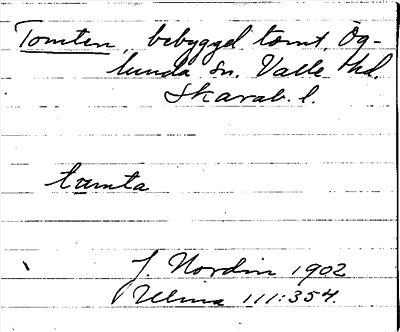 Tomten, bebyggd tomt, Ög-
lunda sn. Valle hd.
Skarab. l.
tamta
J. Nordin 1902
Ulma 111:354.